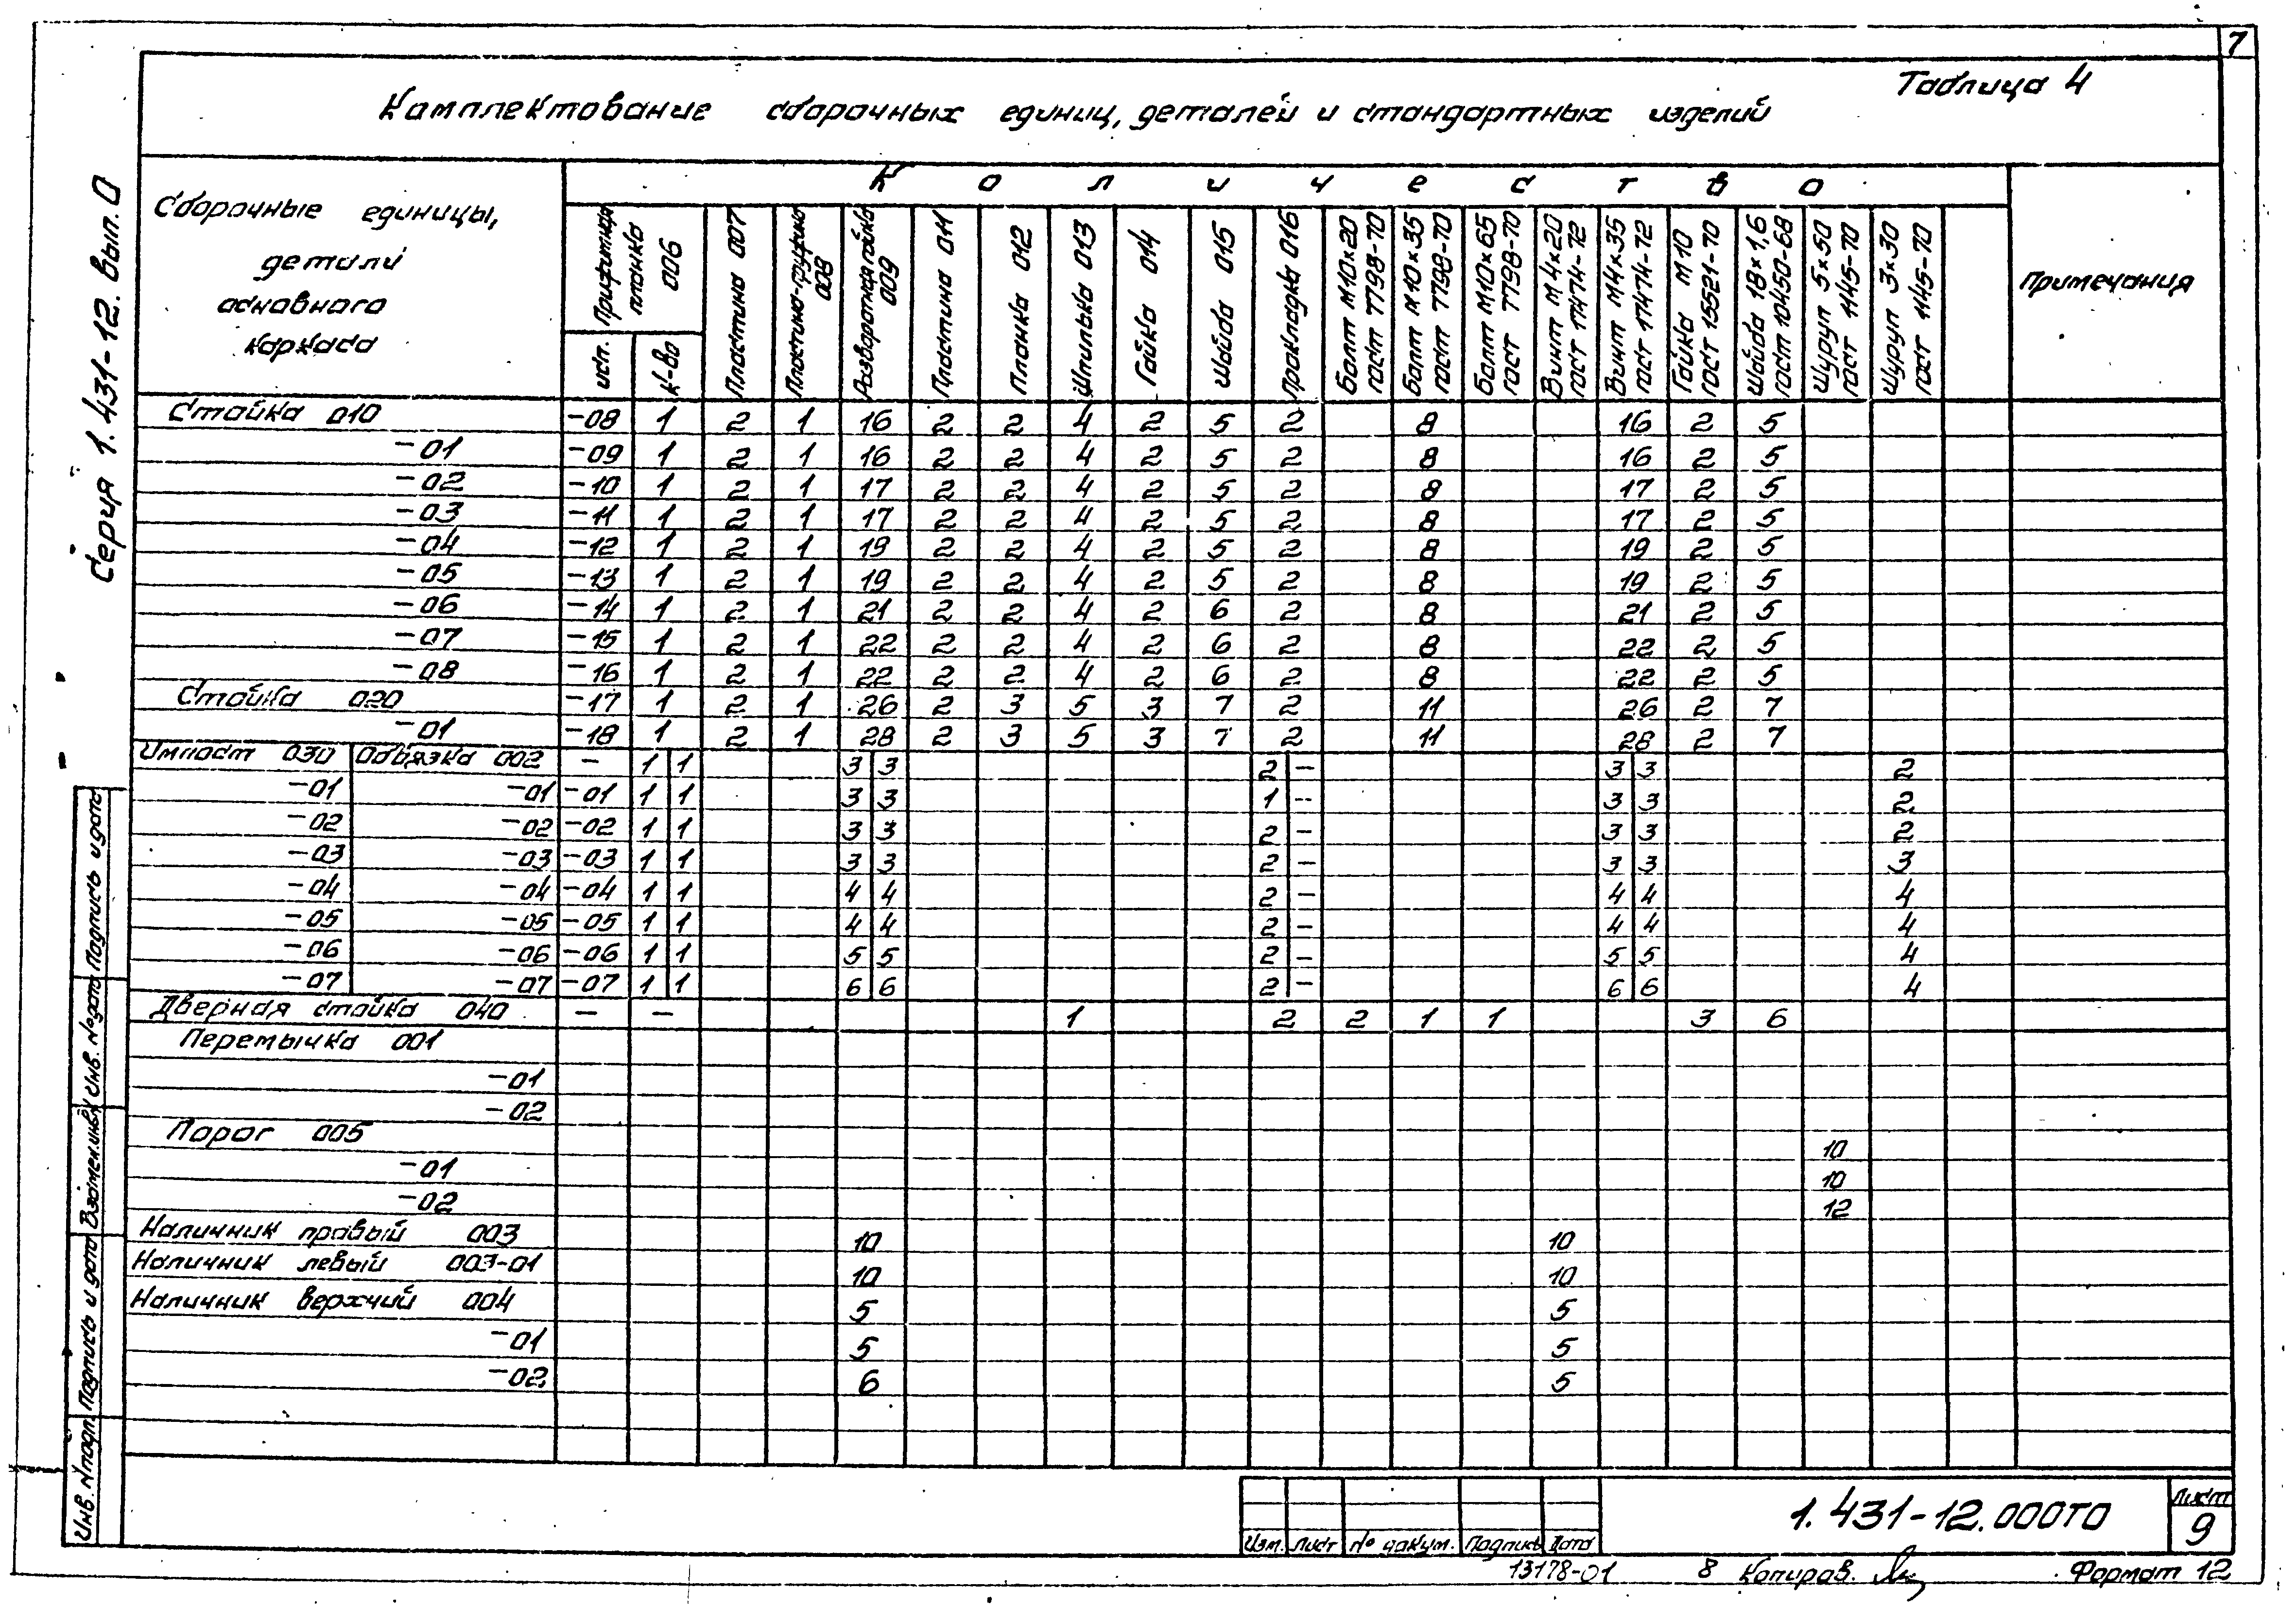 7
Таблица 4
Комплектование сборочных единиц, деталей и стандартных изделий
Серия 1.431-12. Вып. 0
Сборочные единицы, детали основного каркаса
Количество
Примечания
Притворная планка 006
исп.
к-во
Пластина 007
008
Разворотная гайка 009
Пластина 011
Планка 012
Шпилька 013
Гайка 014
Шайба 015
Прокладка 016
Болт М10×20 гост 7798-70
Болт М10×35 гост 7798-70
Болт М10×65 гост 7798-70
Винт М4×20 гост 17474-72
Винт М4×35 гост 17474-72
Гайка М10 гост 15521-70
Шайба 18×1,6 гост 10450-68
Шуруп 5×50 гост 1145-70
Шуруп 3×30 гост 1145-70
Стойка 010 -08 1 2 1 16 2 2 4 2 5 2 8 16 2 5
-01 -09 1 2 1 16 2 2 4 2 5 2 8 16 2 5
-02 -10 1 2 1 17 2 2 4 2 5 2 8 17 2 5
-03 -11 1 2 1 17 2 2 4 2 5 2 8 17 2 5
-04 -12 1 2 1 19 2 2 4 2 5 2 8 19 2 5
-05 -13 1 2 1 19 2 2 4 2 5 2 8 19 2 5
-06 -14 1 2 1 21 2 2 4 2 6 2 8 21 2 5
-07 -15 1 2 1 22 2 2 4 2 6 2 8 22 2 5
-08 -16 1 2 1 22 2 2 4 2 6 2 8 22 2 5
Стойка 020 -17 1 2 1 26 2 3 5 3 7 2 11 26 2 7
-01 -18 1 2 1 28 2 3 5 3 7 2 11 28 2 7
Импост 030 Обвязка 002 - 1 1 3 3 2 - 3 3 2
-01 -01 -01 1 1 3 3 1 - 3 3 2
-02 -02 -02 1 1 3 3 2 - 3 3 2
-03 -03 -03 1 1 3 3 2 - 3 3 3
-04 -04 -04 1 1 4 4 2 - 4 4 4
-05 -05 -05 1 1 4 4 2 - 4 4 4
-06 -06 -06 1 1 5 5 2 - 5 5 4
-07 -07 -07 1 1 6 6 2 - 6 6 4
Дверная стойка 040 - - 1 2 2 1 1 3 6
Перемычка 001
-01
-02
Порог 005 10
-01 10
-02 12
Наличник правый 003 10 10
Наличник левый 003-01 10 10
Наличник верхний 004 5 5
-01 5 5
-02 6 5
Инв. № подл. Подпись и дата Взамен инв. № Инв. № дата Подпись и дата
Изм. Лист № докум. Подпись Дата
1.431-12.000ТО
Лист
9
13178-01 8 Копиров. Формат 12